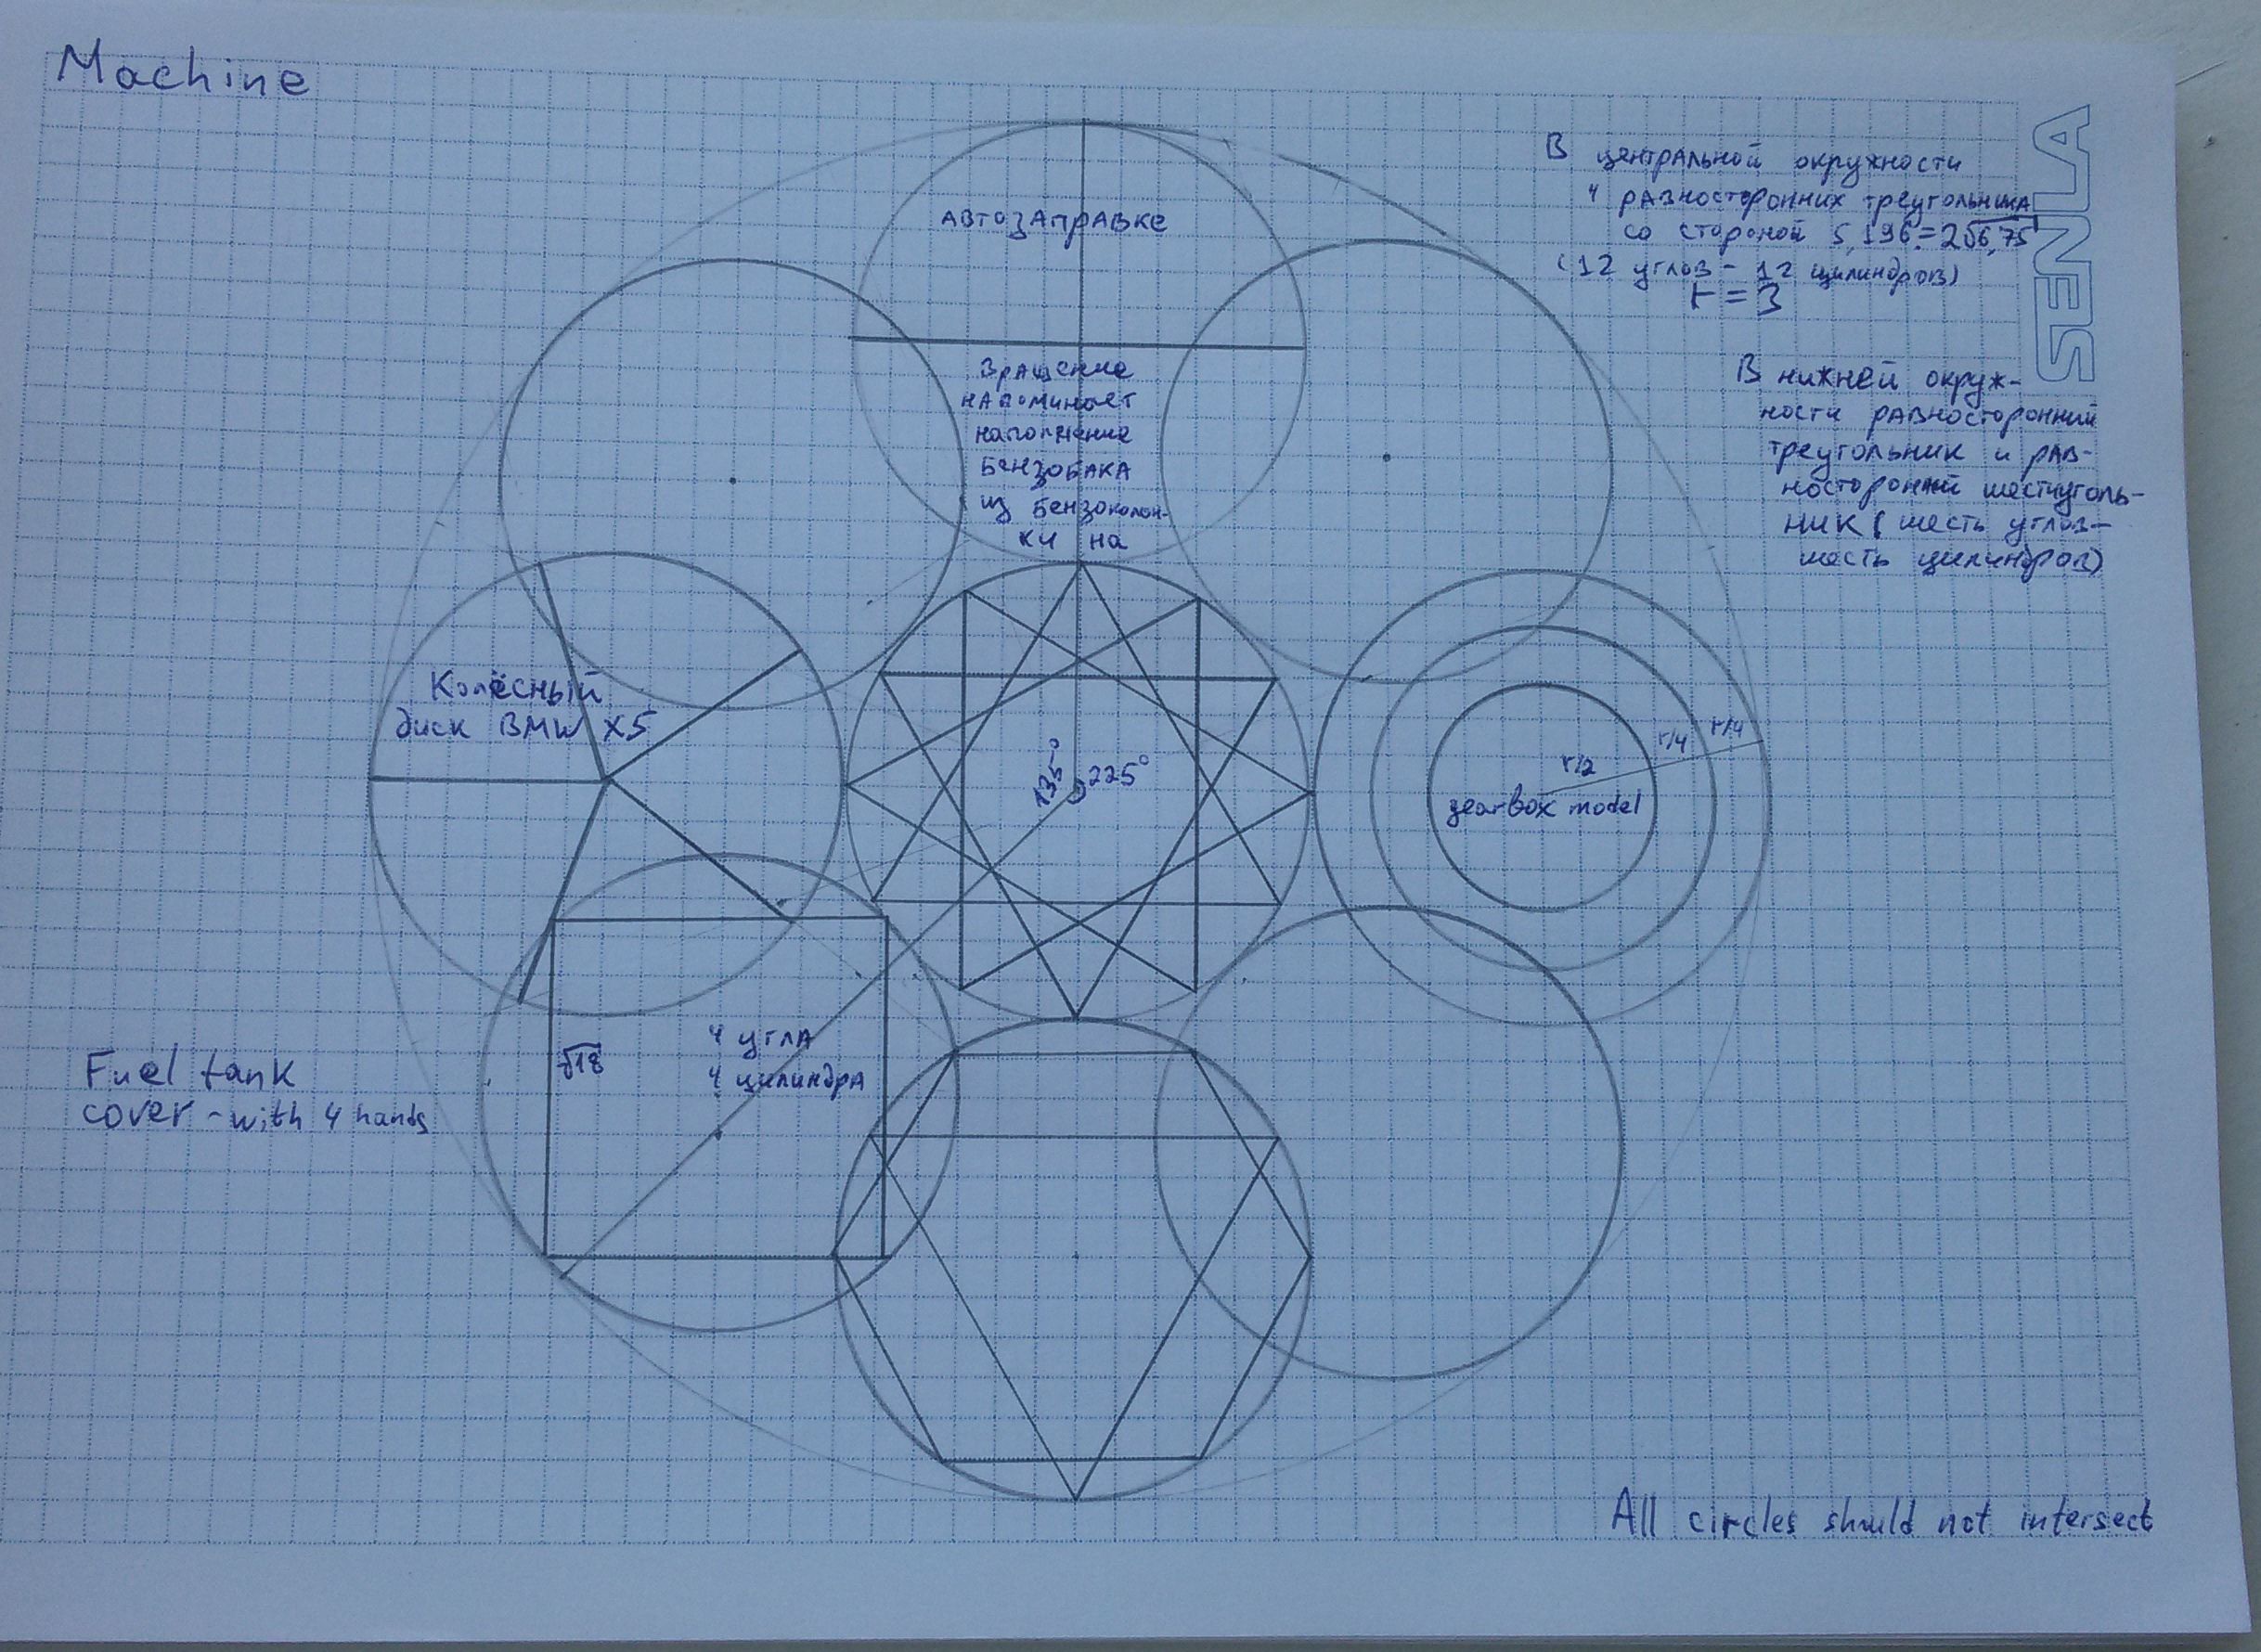 Machine
SENLA
В центральной окружности
4 равносторонних треугольника
со стороной 5,196=2√6,75
(12 углов - 12 цилиндров)
r=3
В нижней окруж-
ности равносторонний
треугольник и рав-
носторонний шестиуголь-
ник (шесть углов-
шесть цилиндров)
Автозаправке
Вращение
напоминает
наполнение
бензобака
из бензоколон-
ки на
Колёсный
диск BMW X5
135°
225°
r/2
r/4
r/4
gearbox model
√18
4 угла
4 цилиндра
Fuel tank
cover - with 4 hands
All circles should not intersect